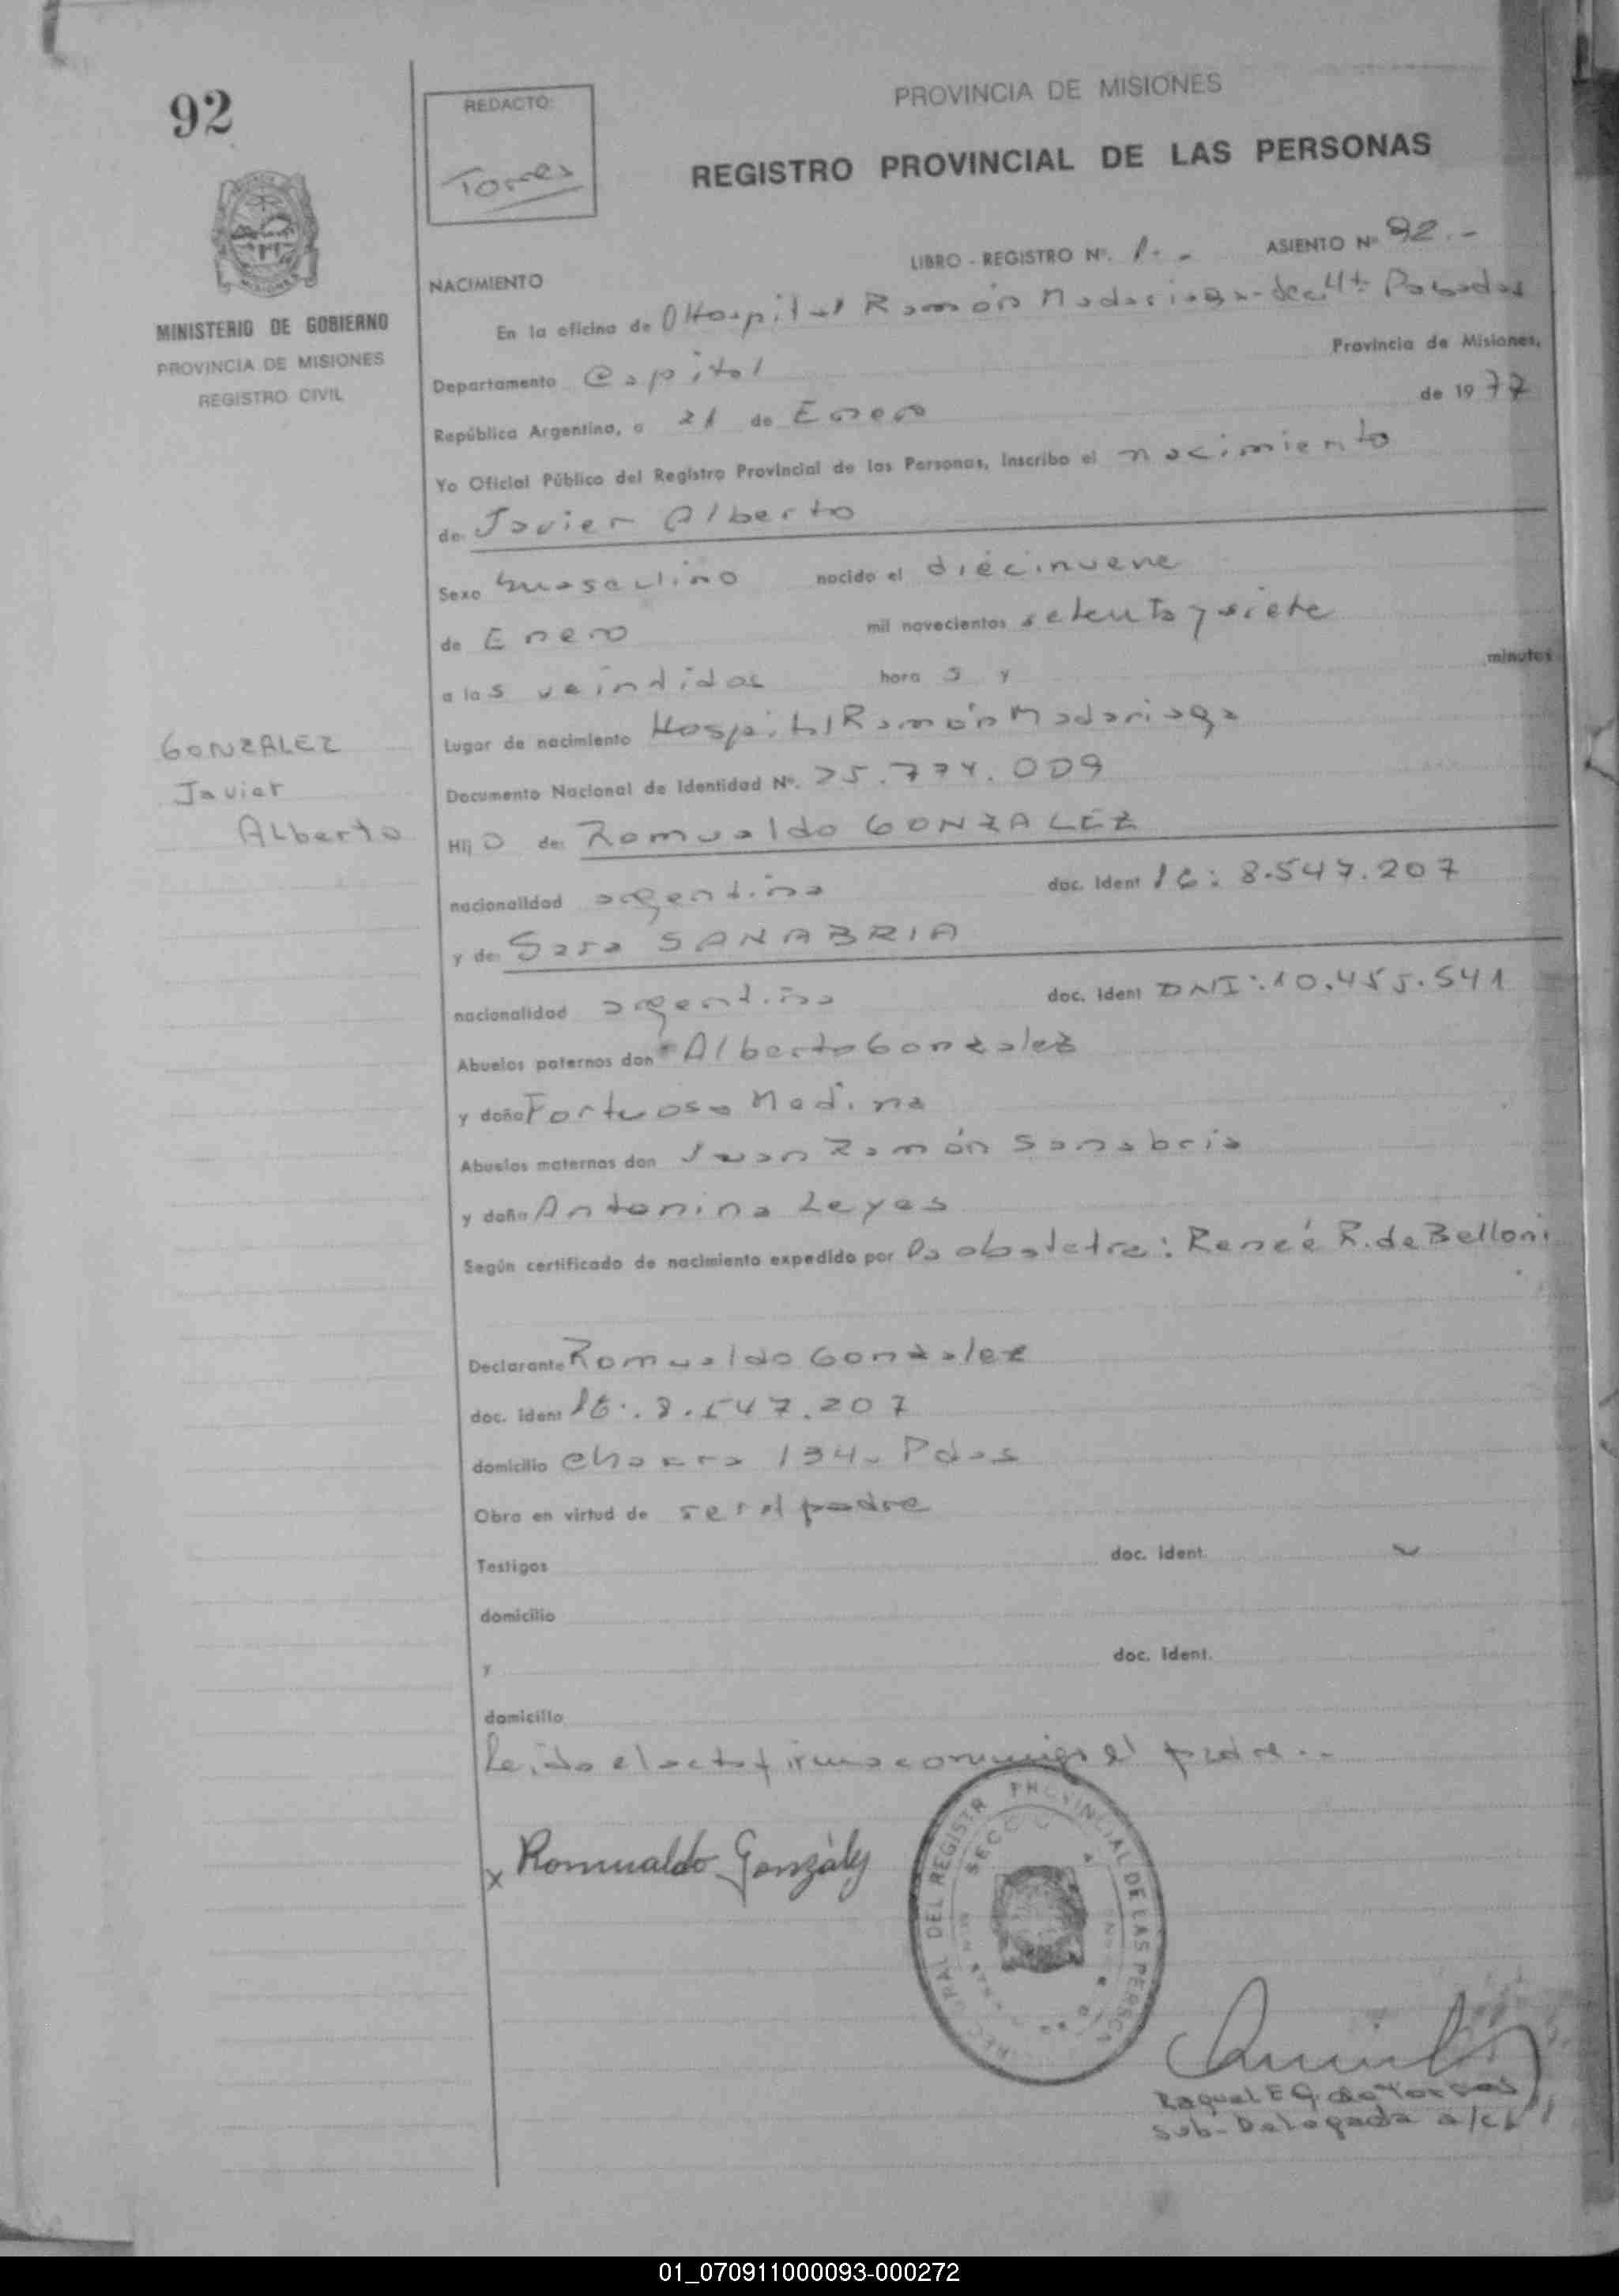 92
REDACTO:
Torres
PROVINCIA DE MISIONES
REGISTRO PROVINCIAL DE LAS PERSONAS
LIBRO - REGISTRO Nº. 1.- ASIENTO Nº 92.-
NACIMIENTO
MINISTERIO DE GOBIERNO
PROVINCIA DE MISIONES
REGISTRO CIVIL
En la oficina de Hospital Ramón Madariaga Posadas
Departamento Capital Provincia de Misiones,
República Argentina, a 21 de Enero de 1977
Yo Oficial Público del Registro Provincial de las Personas, Inscribo el nacimiento
de: Javier Alberto
Sexo masculino nacido el diecinueve
de Enero mil novecientos setenta y siete
a las veindidos hora s y minutos
Lugar de nacimiento Hospital Ramón Madariaga
GONZALEZ
Javier
Alberto
Documento Nacional de Identidad Nº. 25.774.009
Hijo de: Romualdo GONZALEZ
nacionalidad argentina doc. Ident 8.547.207
y de: Sara SANABRIA
nacionalidad argentina doc. Ident DNI: 10.455.541
Abuelos paternos don Alberto Gonzalez
y doña Fortuosa Medina
Abuelos maternos don Juan Ramón Sanabria
y doña Antonina Leyes
Según certificado de nacimiento expedido por la obstetra: Reneé R. de Belloni
Declarante Romualdo Gonzalez
doc. ident 8.547.207
domicilio Chacra 134- Pdas
Obra en virtud de ser el padre
Testigos doc. ident.
domicilio
y doc. Ident.
domicilio
Leido el acta firma conmigo el padre.-
x Romualdo González
DEL REGISTR PROVINCIAL DE LAS PERSONAS
Raquel E G. de Torres
Sub-Delegada
01_070911000093-000272